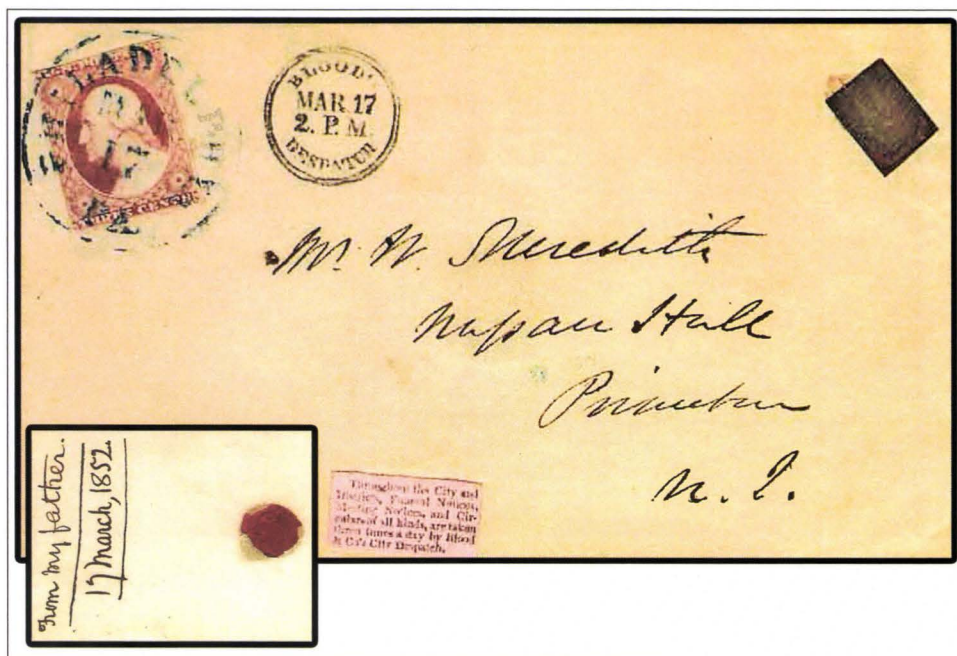 PHILADELPHIA
MAR
17
THREE CENTS
BLOOD'S
MAR 17
2. P.M.
DESPATCH
Mr. W. Meredith
Nassau Hall
Princeton
N. J.
Throughout the City and
Districts, Funeral Notices,
Meeting Notices, and Cir-
culars of all kinds, are taken
three times a day by Blood
& Co's City Despatch.
From my father.
17 March, 1852.